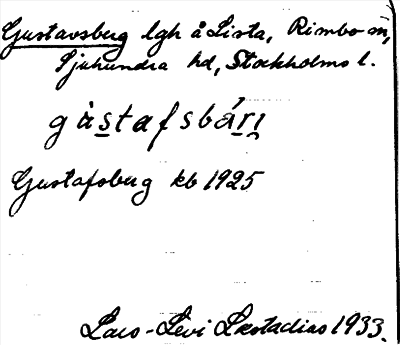 Gustavsberg lgh å Lista, Rimbo sn,
Sjuhundra hd, Stockholms l.
gàstafsbárı
Gustafsberg kb 1925
Lars-Levi Læstadius 1933.